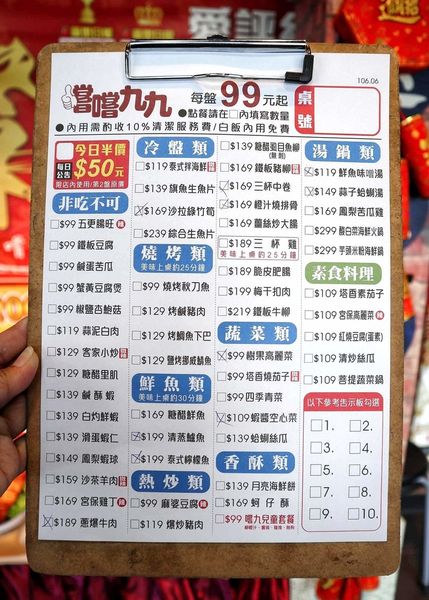 愛評
106.06
嚐嚐九九
每盤99元起
●點餐請在□內填寫數量
●內用需酌收10%清潔服務費/白飯內用免費
桌號
每日公告
今日半價
$50元
限店內使用/第2盤原價
非吃不可
□$99 五更腸旺 辣
□$99 鐵板豆腐
□$99 鹹蛋苦瓜
□$99 蟹黃豆腐煲
□$99 椒鹽百鮑菇
□$119 蒜泥白肉
□$129 客家小炒
□$129 糖醋里肌
□$139 鹹酥蝦
□$139 白灼鮮蝦
□$139 滑蛋蝦仁
□$149 鳳梨蝦球
□$159 沙茶羊肉
□$169 宮保雞丁 辣
□$189 蔥爆牛肉
冷盤類
□$119 泰式拌海鮮
□$139 旗魚生魚片
□$169 沙拉綠竹筍
□$239 綜合生魚片
燒烤類
美味上桌約25分鐘
□$99 燒烤秋刀魚
□$129 烤鹹豬肉
□$129 烤鯛魚下巴
□$129 鹽烤挪威鯖魚
鮮魚類
美味上桌約30分鐘
□$169 糖醋鮮魚
□$199 清蒸鱸魚
□$199 泰式檸檬魚
熱炒類
□$99 麻婆豆腐 辣
□$119 爆炒豬肉
□$139 糖醋虱目魚柳
(無刺)
□$169 鐵板豬柳
□$169 三杯中卷
□$169 橙汁燒排骨
□$169 薑絲炒大腸
□$189 三杯雞
美味上桌約25分鐘
□$189 脆皮肥腸
□$199 梅干扣肉
□$219 鐵板牛柳
蔬菜類
□$99 樹果高麗菜
□$99 塔香燒茄子
□$99 四季肉菁
□$109 蝦醬空心菜
□$139 蛤蜊絲瓜
香酥類
□$139 月亮海鮮餅
□$169 蚵仔酥
□$99 嚐九兒童套餐
湯鍋類
□$119 鮮魚味噌湯
□$149 蒜子蛤蜊湯
□$169 鳳梨苦瓜雞
□$299 酸白菜海鮮火鍋
□$299 芋頭米粉海鮮鍋
素食料理
□$109 塔香素茄子
□$109 宮保高麗菜 辣
□$109 紅燒豆腐(蛋素)
□$109 清炒絲瓜
□$109 菩提蔬菜鍋
以下參考告示板勾選
□1. □2.
□3. □4.
□5. □6.
□7. □8.
□9. □10.